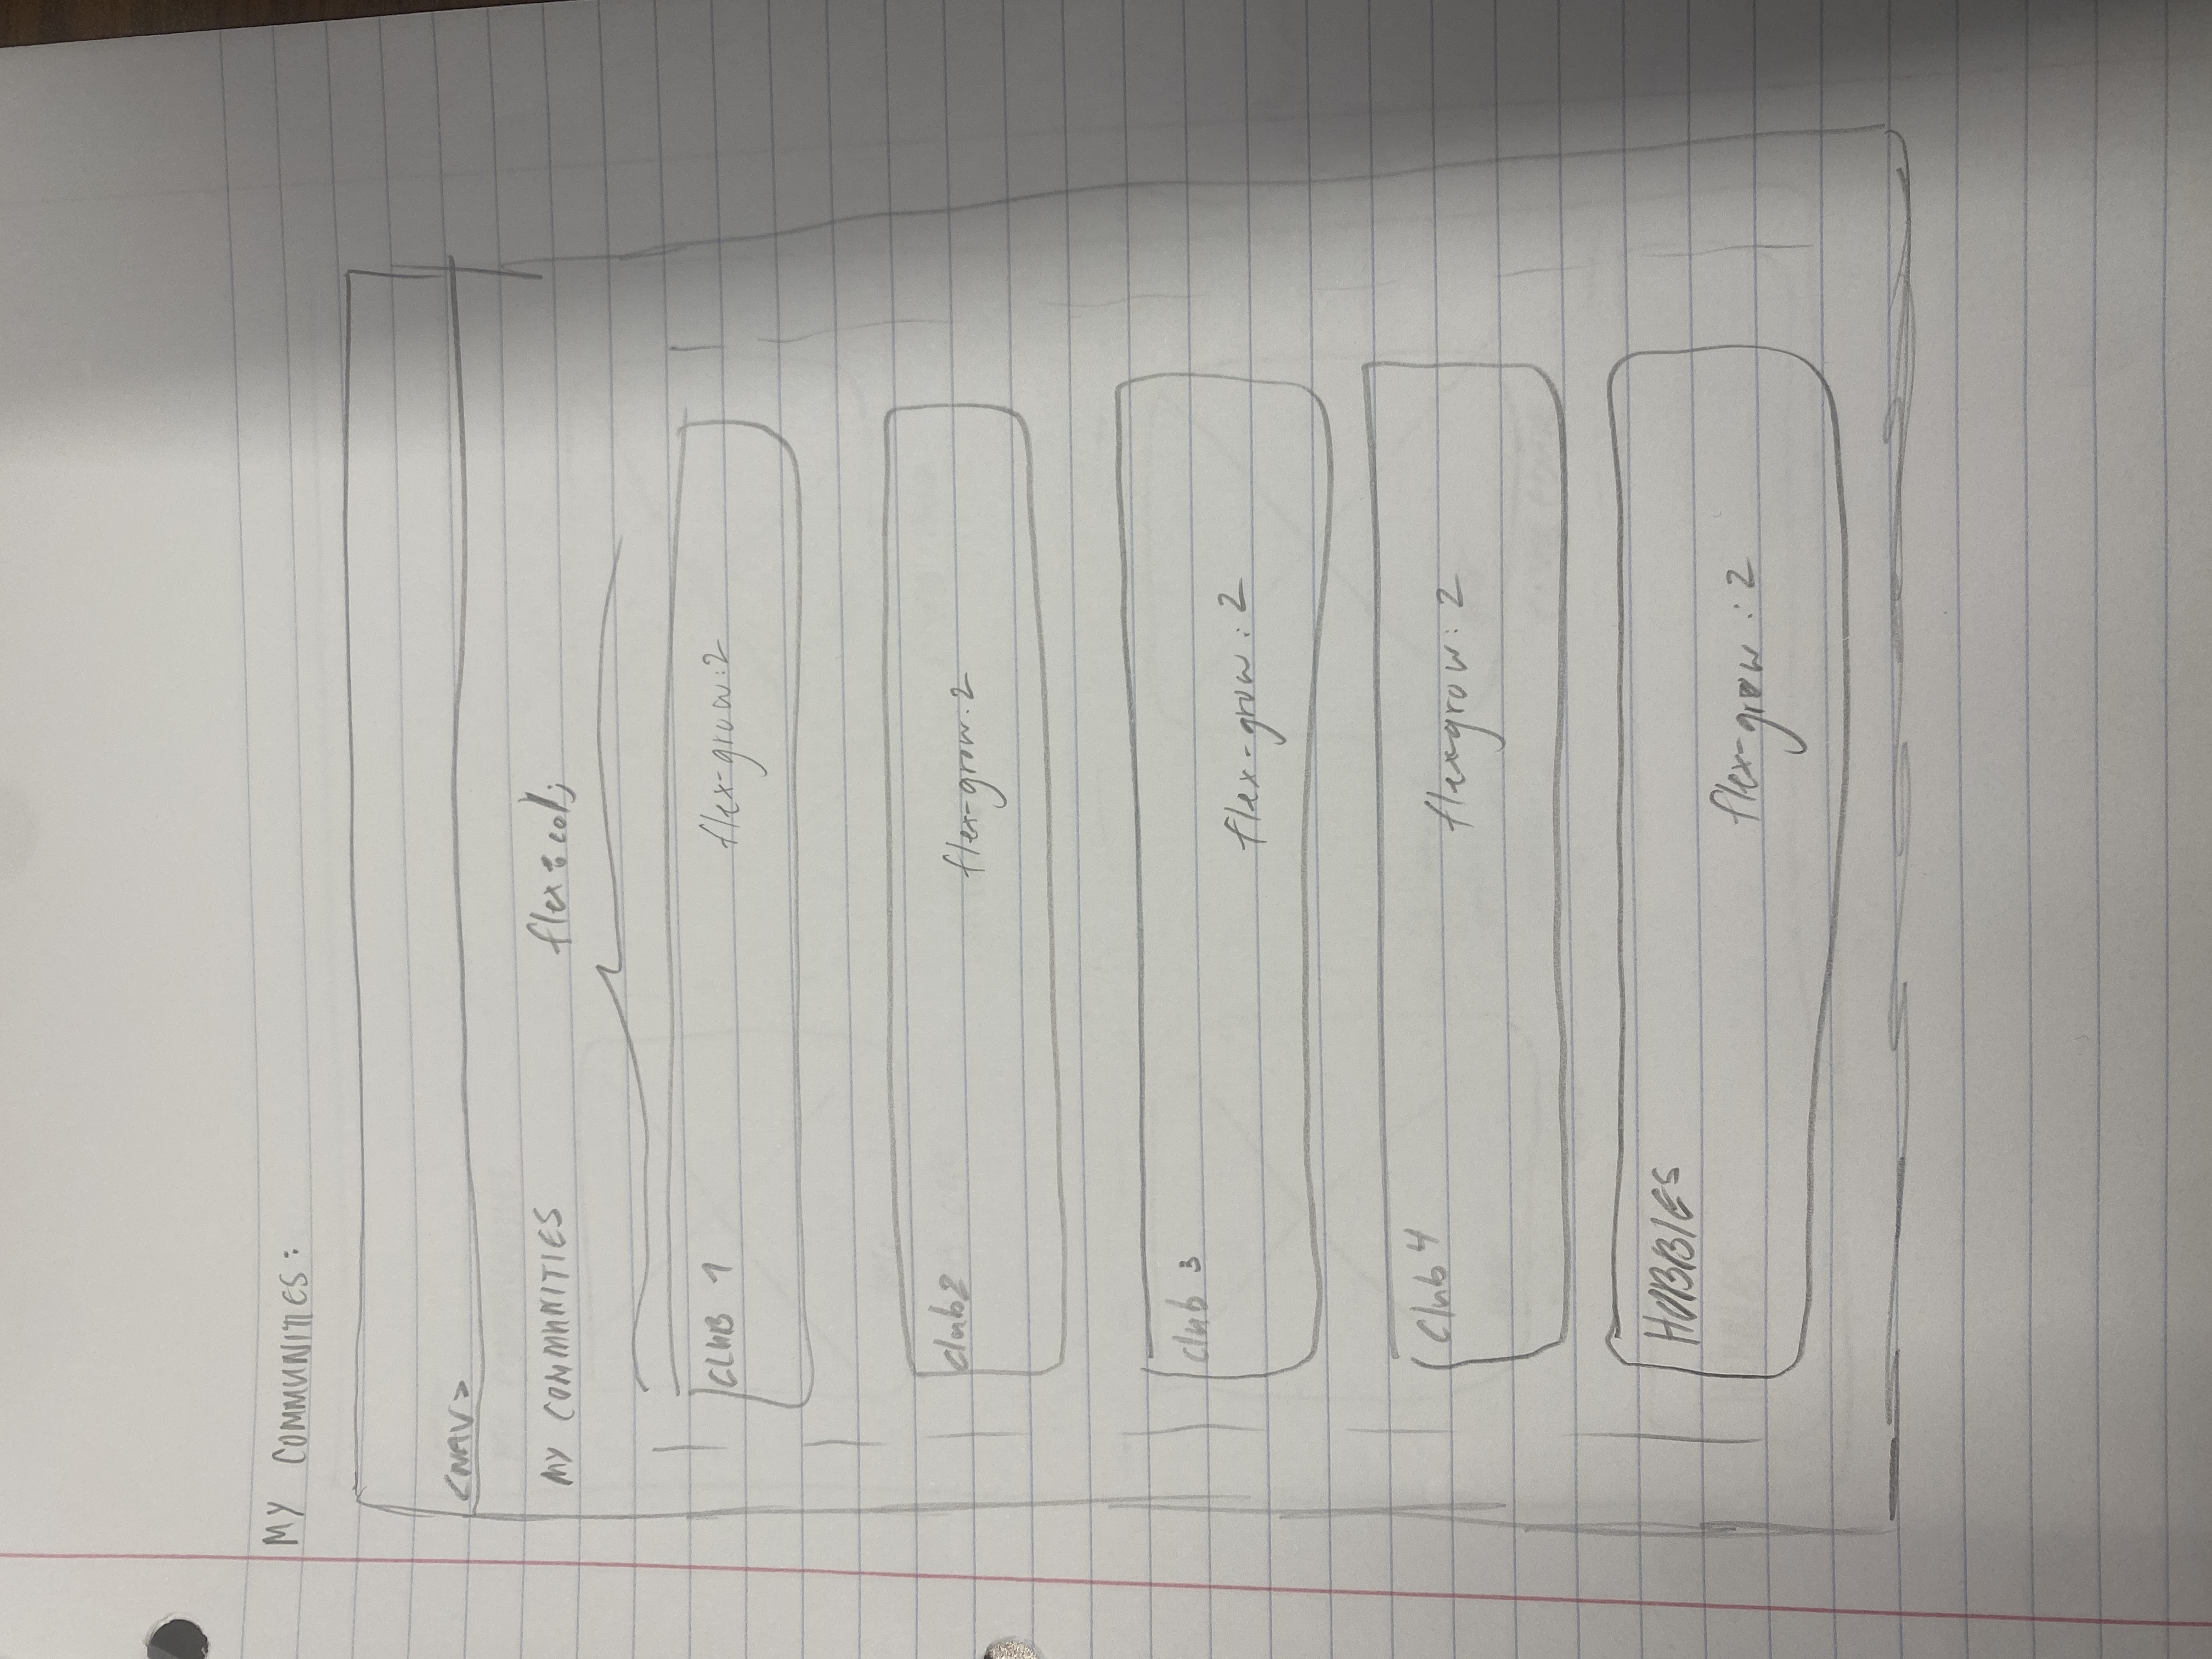 MY COMMUNITIES:
<NAV>
MY COMMUNITIES flex:col;
CLUB 1 flex-grow:2
club2 flex-grow:2
club 3
flex-grow:2
Club 4 flex-grow:2
HOBBIES
flex-grow:2